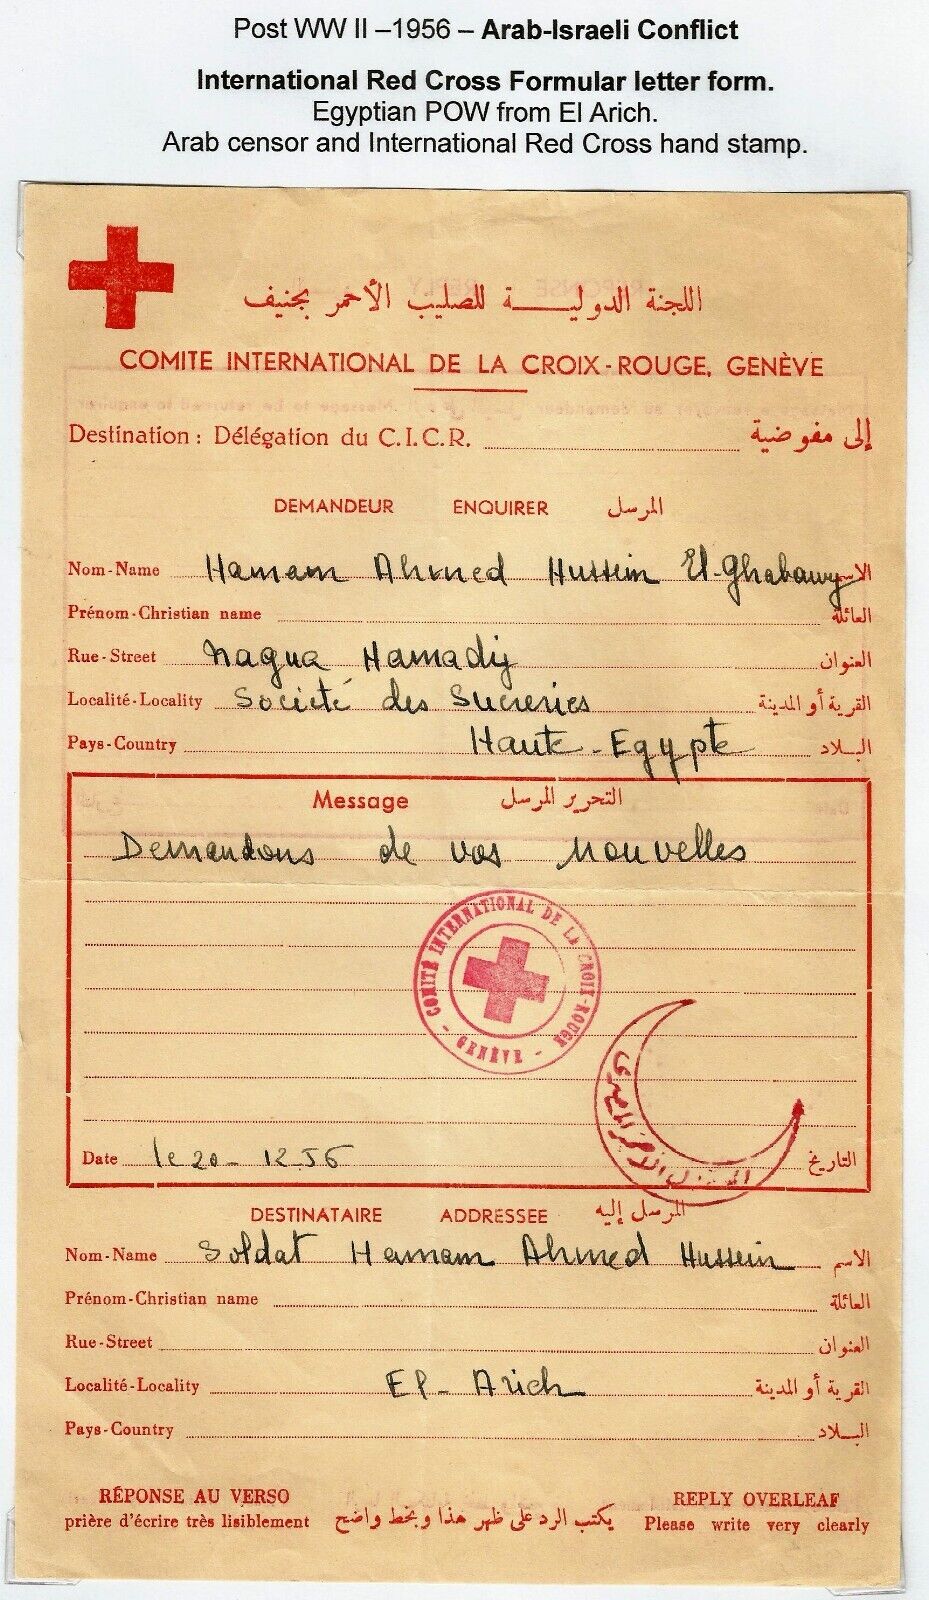 Post WW II –1956 – Arab-Israeli Conflict
International Red Cross Formular letter form.
Egyptian POW from El Arich.
Arab censor and International Red Cross hand stamp.
اللجنة الدولية للصليب الأحمر بجنيف
COMITE INTERNATIONAL DE LA CROIX-ROUGE, GENÈVE
Destination : Délégation du C.I.C.R. إلى مفوضية
DEMANDEUR ENQUIRER المرسل
Nom-Name Hamam Ahmed Hussein El-Ghabawy الاسم
Prénom-Christian name العائلة
Rue-Street Nagua Hamadij العنوان
Localité-Locality Société des Sucreries القرية أو المدينة
Pays-Country Haute-Egypte البلاد
Message التحرير المرسل
Demandons de vos nouvelles
COMITÉ INTERNATIONAL DE LA CROIX-ROUGE
- GENÈVE -
الهلال الاحمر المصرى
Date le 20-12-56 التاريخ
DESTINATAIRE ADDRESSEE المرسل إليه
Nom-Name Soldat Hamam Ahmed Hussein الاسم
Prénom-Christian name العائلة
Rue-Street العنوان
Localité-Locality El-Arich القرية أو المدينة
Pays-Country البلاد
RÉPONSE AU VERSO REPLY OVERLEAF
prière d'écrire très lisiblement يكتب الرد على ظهر هذا وبخط واضح Please write very clearly